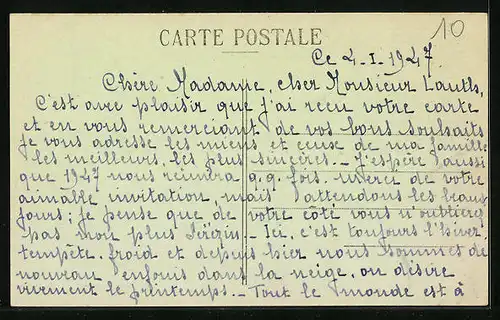 10
CARTE POSTALE
Ce 4-I-1947.
Chère Madame, cher Monsieur Lauth,
C'est avec plaisir que j'ai reçu votre carte
et en vous remerciant de vos bons souhaits
je vous adresse les miens et ceux de ma famille
les meilleurs, les plus sincères. - J'espère aussi
que 1947 nous réunira q.q. fois, merci de votre
aimable invitation, mais attendons les beaux
jours; je pense que de votre côté vous n'oublierez
pas non plus. Ici, c'est toujours l'hiver
tempête, froid et depuis hier nous sommes de
nouveau enfouis dans la neige, on désire
vivement le printemps. - Tout le monde est à